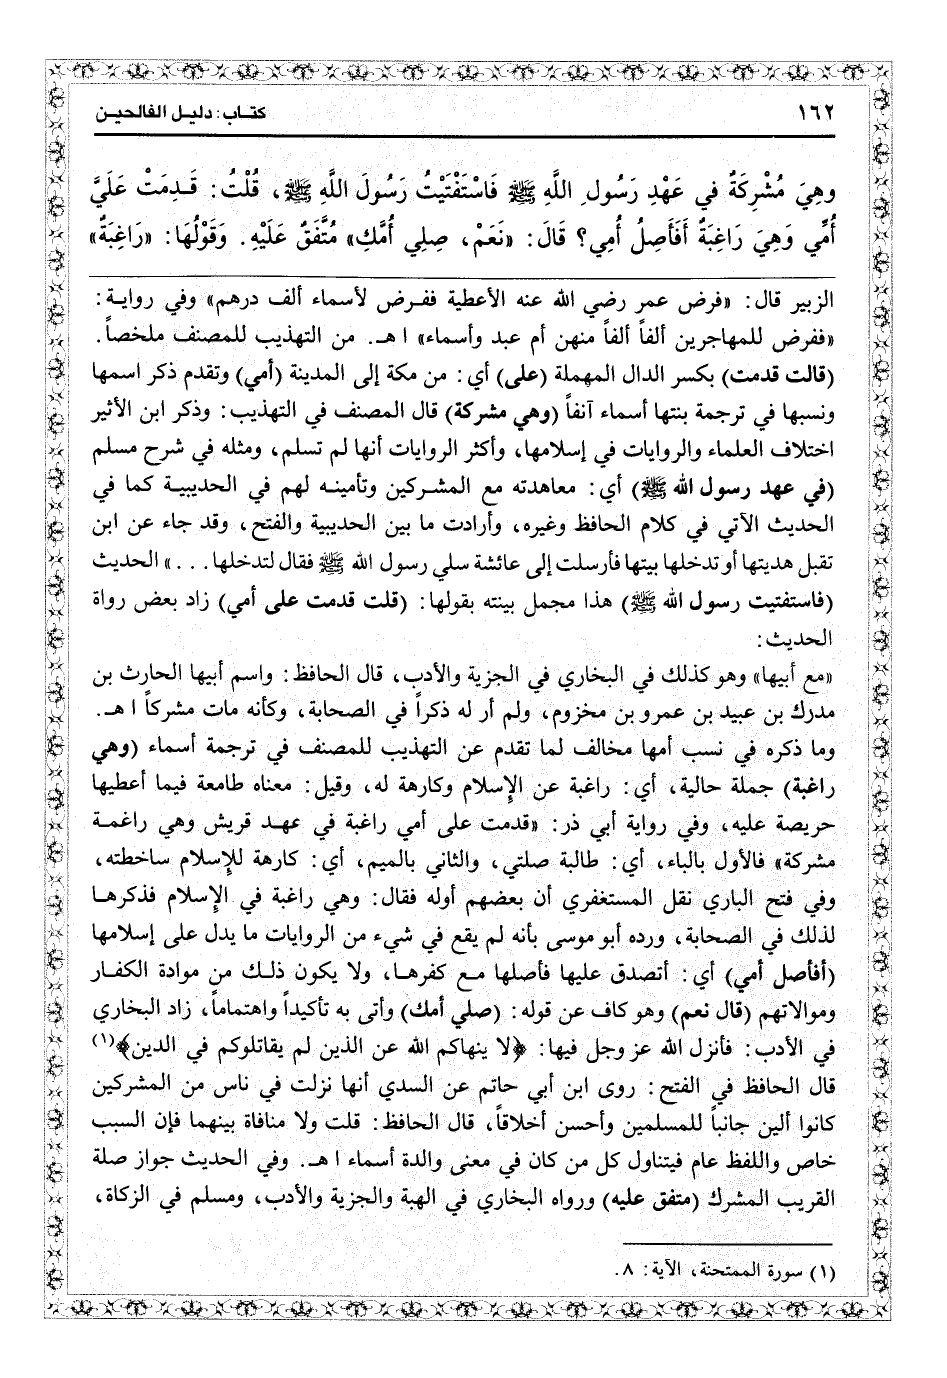 ١٦٢
كتاب: دليل الفالحين
وهِيَ مُشْرِكَةٌ في عَهْدِ رَسُولِ اللَّهِ ﷺ فَاسْتَفْتَيْتُ رَسُولَ اللَّهِ ﷺ، قُلْتُ: قَدِمَتْ عَلَيَّ
أُمِّي وَهِيَ رَاغِبَةٌ أَفَأَصِلُ أُمِي؟ قَالَ: «نَعَمْ، صِلِي أُمَّكِ» مُتَّفَقٌ عَلَيْهِ. وَقَوْلُهَا: «رَاغِبَةٌ»
الزبير قال: «فرض عمر رضي الله عنه الأعطية ففرض لأسماء ألف درهم» وفي رواية:
«ففرض للمهاجرين ألفاً ألفاً منهن أم عبد وأسماء» ا هـ. من التهذيب للمصنف ملخصاً.
(قالت قدمت) بكسر الدال المهملة (على) أي: من مكة إلى المدينة (أمي) وتقدم ذكر اسمها
ونسبها في ترجمة بنتها أسماء آنفاً (وهي مشركة) قال المصنف في التهذيب: وذكر ابن الأثير
اختلاف العلماء والروايات في إسلامها، وأكثر الروايات أنها لم تسلم، ومثله في شرح مسلم
(في عهد رسول الله ﷺ) أي: معاهدته مع المشركين وتأمينه لهم في الحديبية كما في
الحديث الآتي في كلام الحافظ وغيره، وأرادت ما بين الحديبية والفتح، وقد جاء عن ابن
تقبل هديتها أو تدخلها بيتها فأرسلت إلى عائشة سلي رسول الله ﷺ فقال لتدخلها. . .» الحديث
(فاستفتيت رسول الله ﷺ) هذا مجمل بينته بقولها: (قلت قدمت على أمي) زاد بعض رواة
الحديث:
«مع أبيها» وهو كذلك في البخاري في الجزية والأدب، قال الحافظ: واسم أبيها الحارث بن
مدرك بن عبيد بن عمرو بن مخزوم، ولم أر له ذكراً في الصحابة، وكأنه مات مشركاً ا هـ.
وما ذكره في نسب أمها مخالف لما تقدم عن التهذيب للمصنف في ترجمة أسماء (وهي
راغبة) جملة حالية، أي: راغبة عن الإسلام وكارهة له، وقيل: معناه طامعة فيما أعطيها
حريصة عليه، وفي رواية أبي ذر: «قدمت على أمي راغبة في عهد قريش وهي راغمة
مشركة» فالأول بالباء، أي: طالبة صلتي، والثاني بالميم، أي: كارهة للإسلام ساخطته،
وفي فتح الباري نقل المستغفري أن بعضهم أوله فقال: وهي راغبة في الإسلام فذكرها
لذلك في الصحابة، ورده أبو موسى بأنه لم يقع في شيء من الروايات ما يدل على إسلامها
(أفأصل أمي) أي: أتصدق عليها فأصلها مع كفرها، ولا يكون ذلك من موادة الكفار
وموالاتهم (قال نعم) وهو كاف عن قوله: (صلي أمك) وأتى به تأكيداً واهتماماً، زاد البخاري
في الأدب: فأنزل الله عز وجل فيها: ﴿لا ينهاكم الله عن الذين لم يقاتلوكم في الدين﴾(١)
قال الحافظ في الفتح: روى ابن أبي حاتم عن السدي أنها نزلت في ناس من المشركين
كانوا ألين جانباً للمسلمين وأحسن أخلاقاً، قال الحافظ: قلت ولا منافاة بينهما فإن السبب
خاص واللفظ عام فيتناول كل من كان في معنى والدة أسماء ا هـ. وفي الحديث جواز صلة
القريب المشرك (متفق عليه) ورواه البخاري في الهبة والجزية والأدب، ومسلم في الزكاة،
(١) سورة الممتحنة، الآية: ٨.